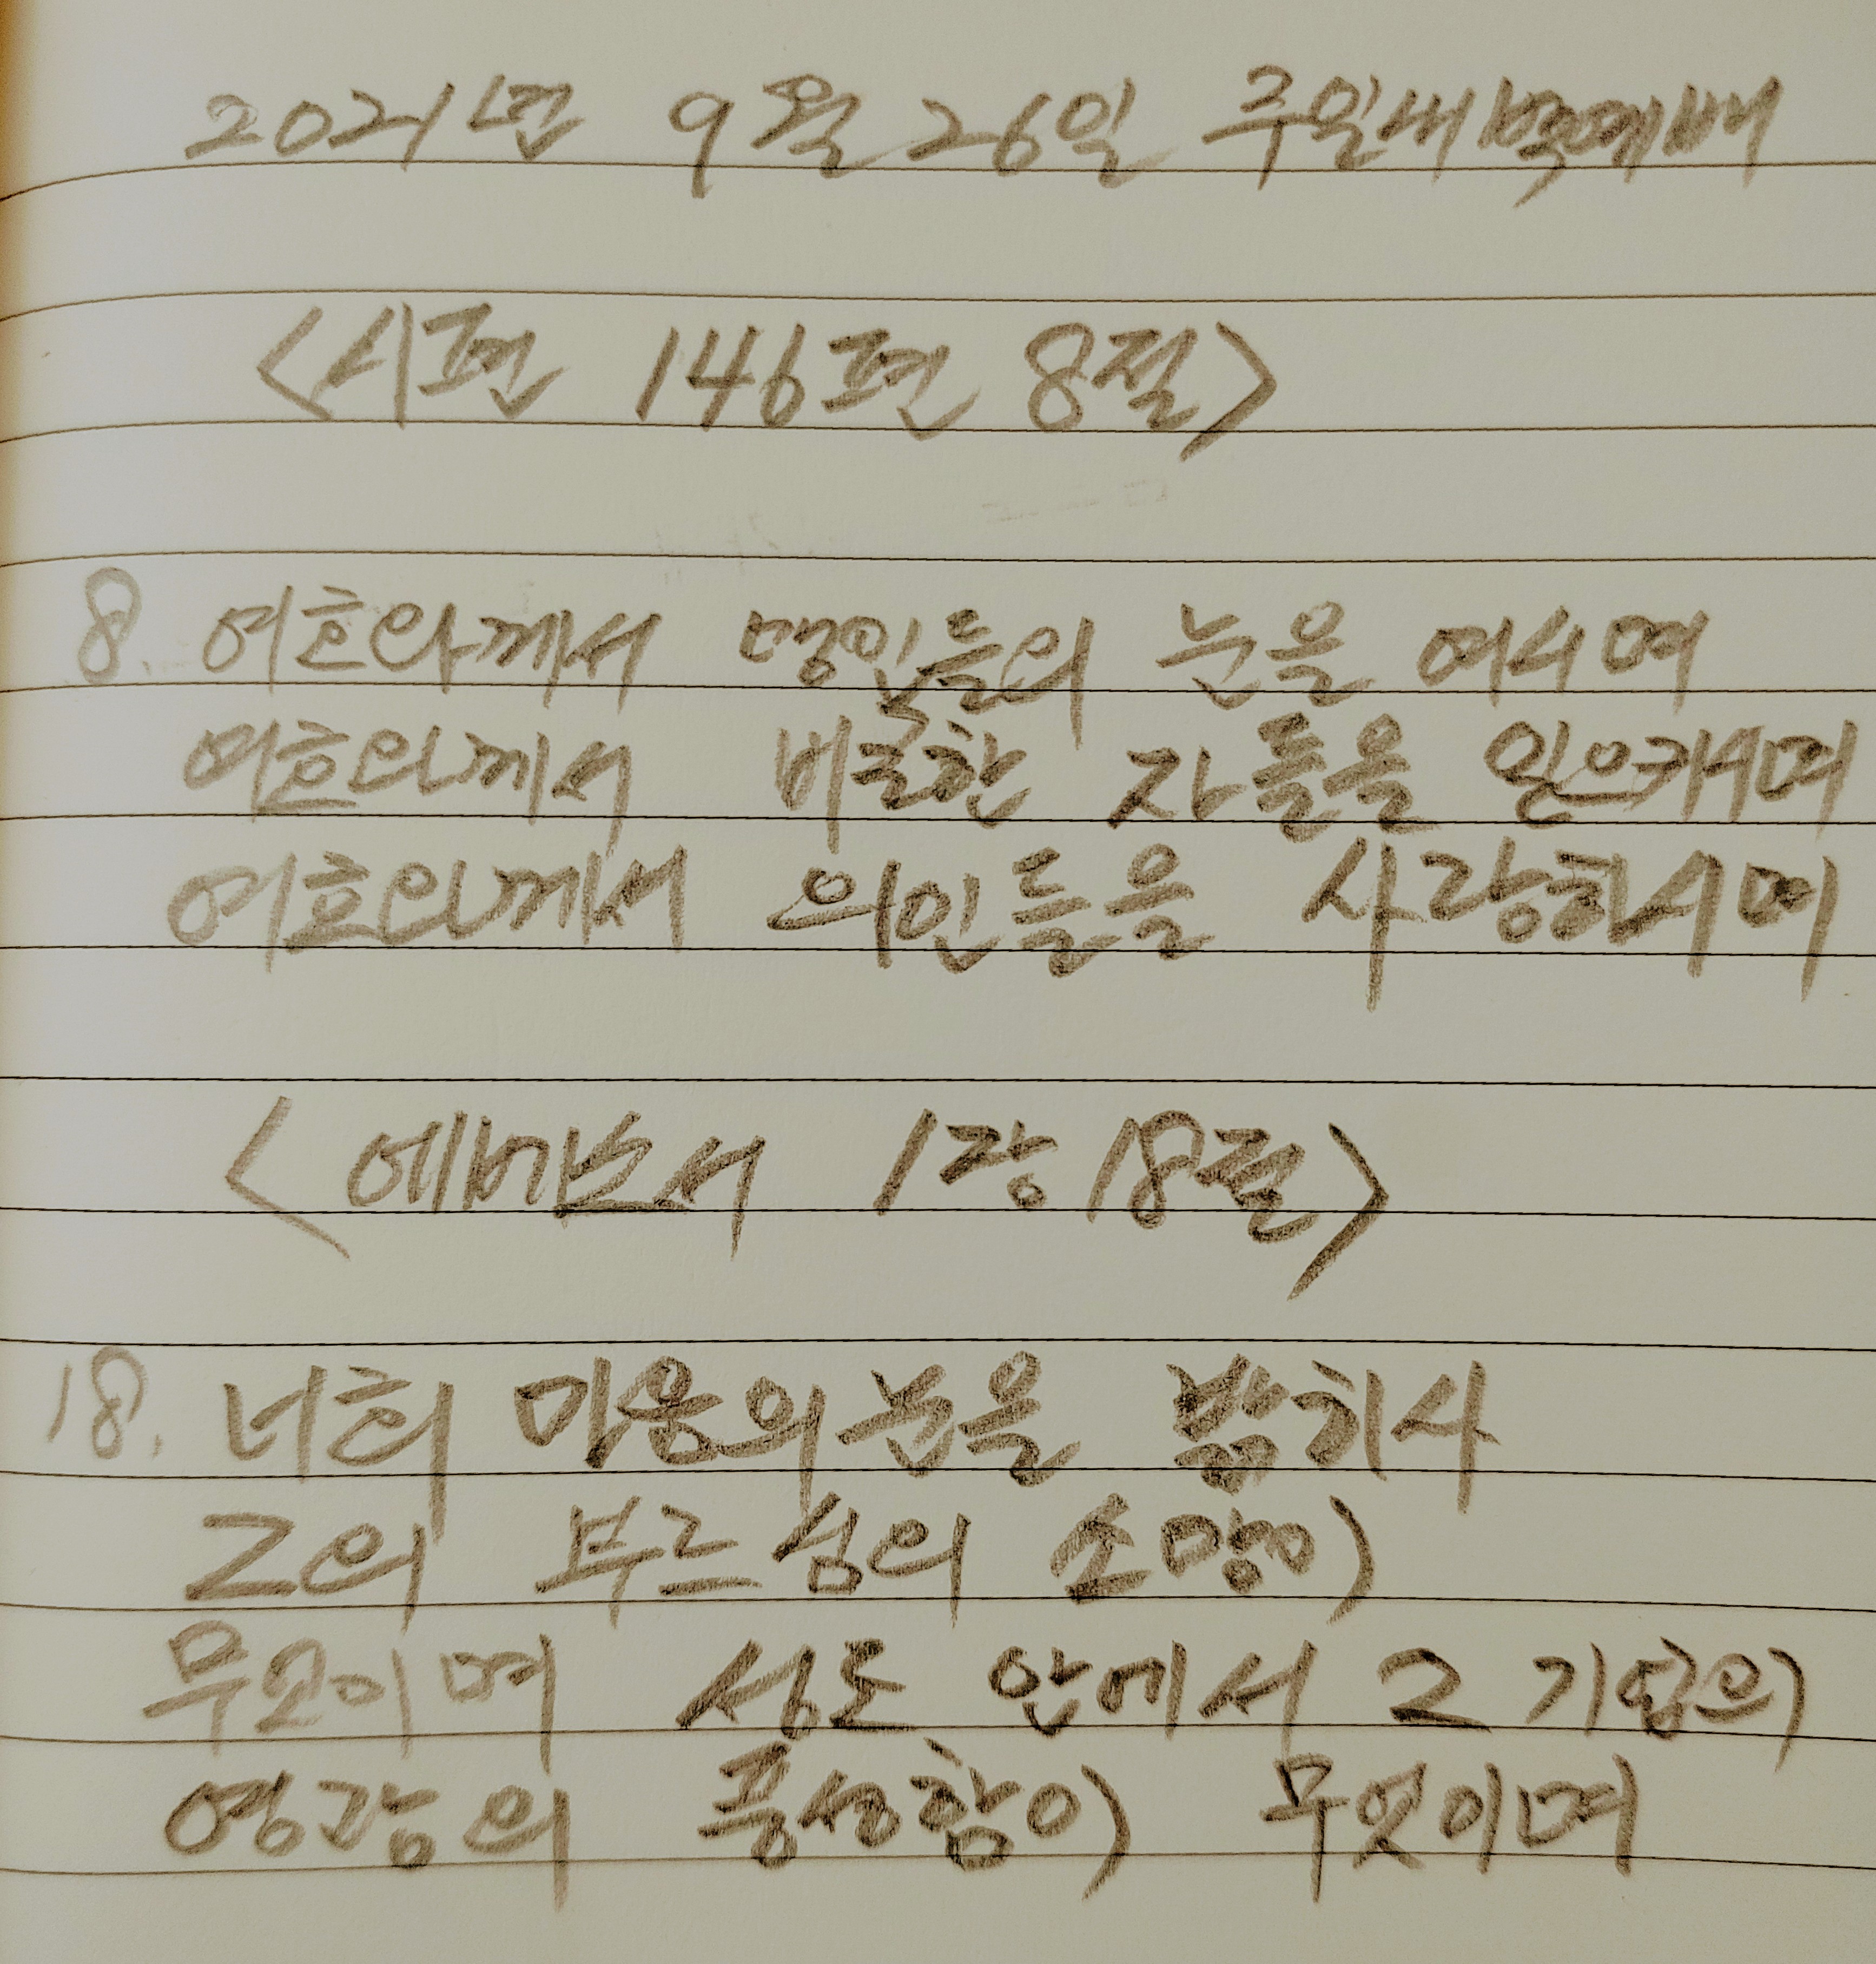 2021년 9월 26일 주일새벽예배
<시편 146편 8절>
8. 여호와께서 맹인들의 눈을 여시며
여호와께서 비굴한 자들을 일으키시며
여호와께서 의인들을 사랑하시며
<에베소서 1장 18절>
18. 너희 마음의 눈을 밝히사
그의 부르심의 소망이
무엇이며 성도 안에서 그 기업의
영광의 풍성함이 무엇이며